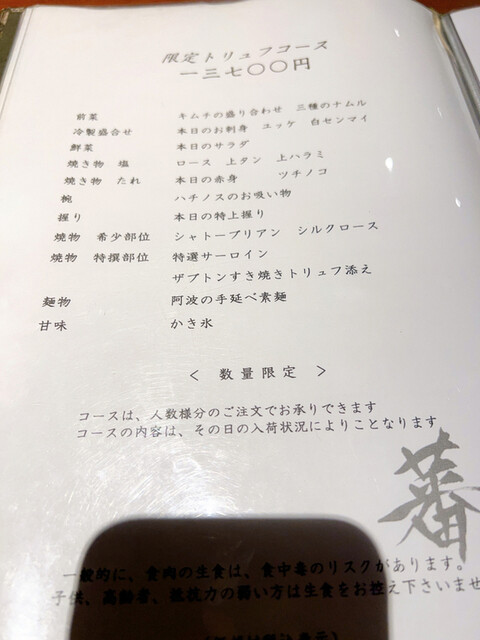 限定トリュフコース
一三七〇〇円
前菜 キムチの盛り合わせ 三種のナムル
冷製盛合せ 本日のお刺身 ユッケ 白センマイ
鮮菜 本日のサラダ
焼き物 塩 ロース 上タン 上ハラミ
焼き物 たれ 本日の赤身 ツチノコ
椀 ハチノスのお吸い物
握り 本日の特上握り
焼物 希少部位 シャトーブリアン シルクロース
焼物 特撰部位 特選サーロイン
ザブトンすき焼きトリュフ添え
麺物 阿波の手延べ素麺
甘味 かき氷
＜ 数量限定 ＞
コースは、人数様分のご注文でお承りできます
コースの内容は、その日の入荷状況によりことなります
蕃
一般的に、食肉の生食は、食中毒のリスクがあります。
子供、高齢者、抵抗力の弱い方は生食をお控え下さいませ